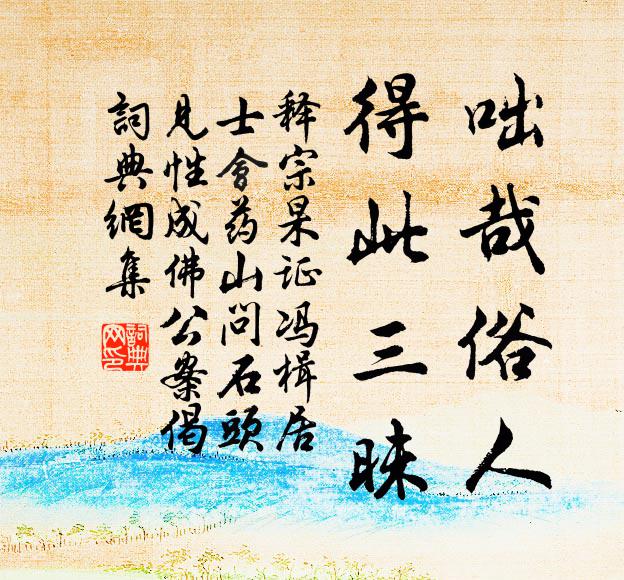 咄哉俗人
得此三昧
释宗杲证冯楫居
士会药山问石头
见性成佛公案偈
詞典網集
詞典網印